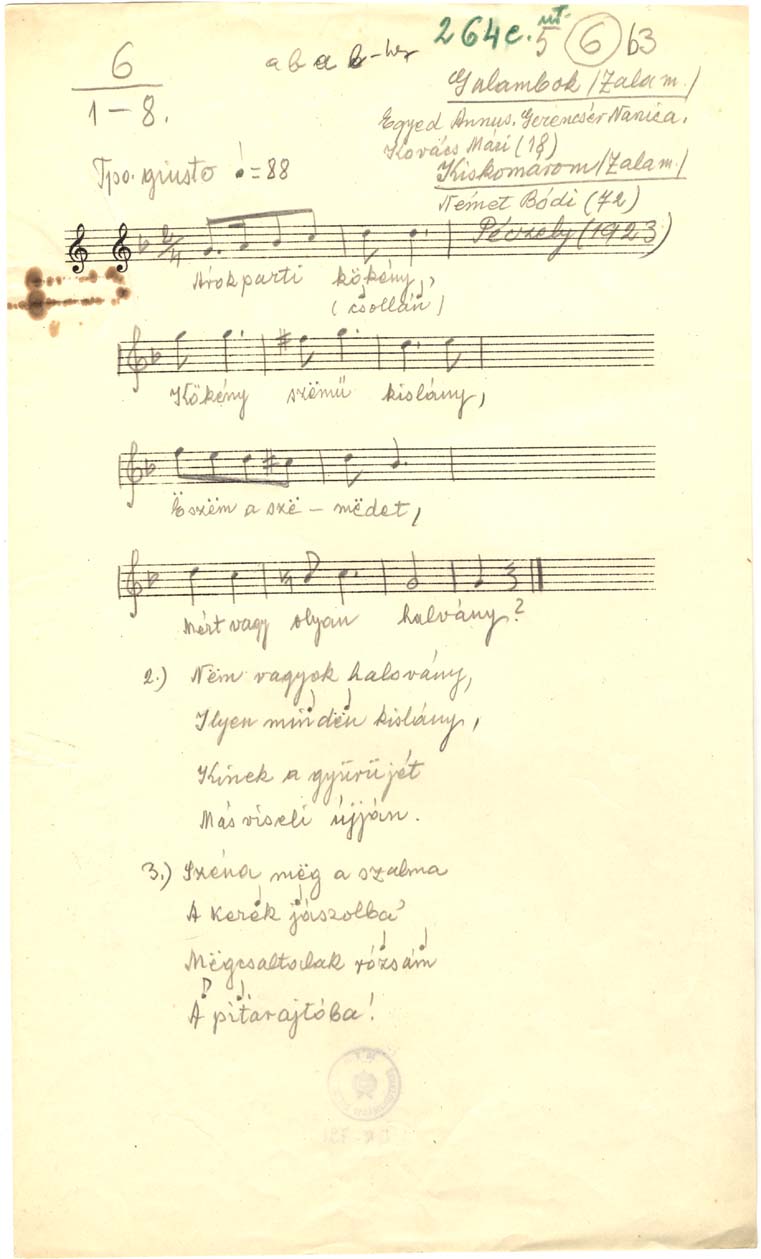 264c. ut. 5 6 b3
6
1-8.
Galambok /Zala m./
Egyed Annus, Gerencsér Nanica,
Kovács Mári (18)
Kiskomarom /Zala m./
Német Bódi (72)
Péczely (1923)
Tpo. giusto ♩=88
2/4
Árokparti kökény,
(csollán)
Kökény szëmű kislány,
Ëszëm a szë-mëdet,
Mért vagy olyan halvány?
2.) Nëm vagyok halovány,
Ilyen mindën kislány,
Kinek a gyűrűjét
Más viseli újján.
3.) Széna mëg a szalma
A kerek jászolba'
Mëgcsaltalak rózsám
A pitarajtóba!